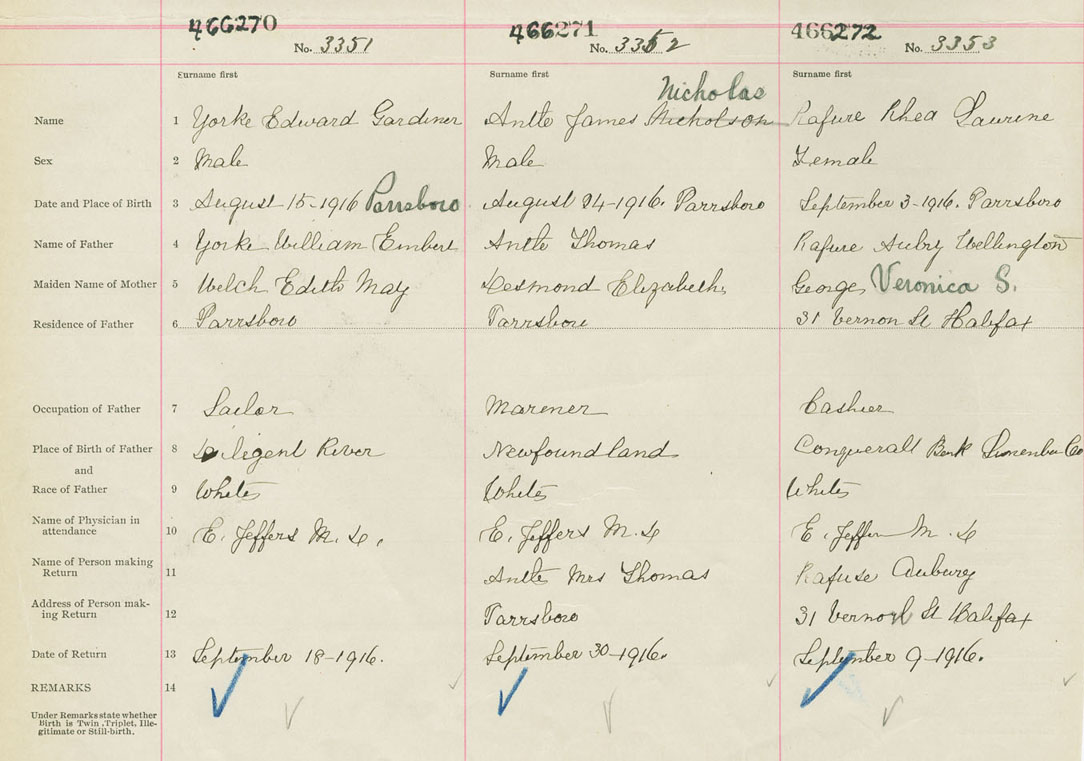 466270 466271 466272
No. 3351 No. 3352 No. 3353
Surname first Surname first Surname first
Nicholas
Name 1 Yorke Edward Gardiner Antle James Nicholson Rafuse Rhea Laurine
Sex 2 Male Male Female
Date and Place of Birth 3 August 15-1916 Parrsboro August 24-1916. Parrsboro September 3-1916. Parrsboro
Name of Father 4 Yorke William Embert Antle Thomas Rafuse Aubry Wellington
Maiden Name of Mother 5 Welch Edith May Desmond Elizabeth George, Veronica S.
Residence of Father 6 Parrsboro Parrsboro 31 Vernon St Halifax
Occupation of Father 7 Sailor Mariner Cashier
Place of Birth of Father 8 Diligent River Newfoundland Conquerall Bank Lunenburg Co
and
Race of Father 9 White White White
Name of Physician in
attendance 10 E. Jeffers M. D. E. Jeffers M. D E. Jeffers M. D
Name of Person making
Return 11 Antle Mrs Thomas Rafuse Auburg
Address of Person mak-
ing Return 12 Parrsboro 31 Vernon St Halifax
Date of Return 13 September 18-1916. September 30-1916. September 9-1916.
REMARKS 14
Under Remarks state whether
Birth is Twin, Triplet, Ille-
gitimate or Still-birth.